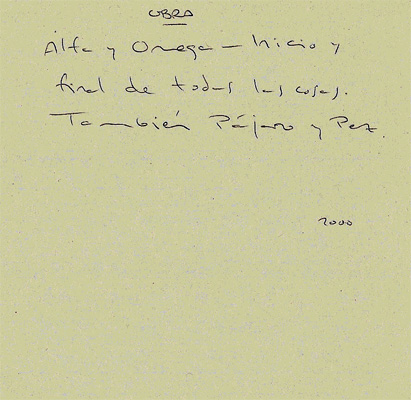 OBRA
Alfa y Omega – Inicio y
final de todas las cosas.
También Pájaro y Pez.
2000